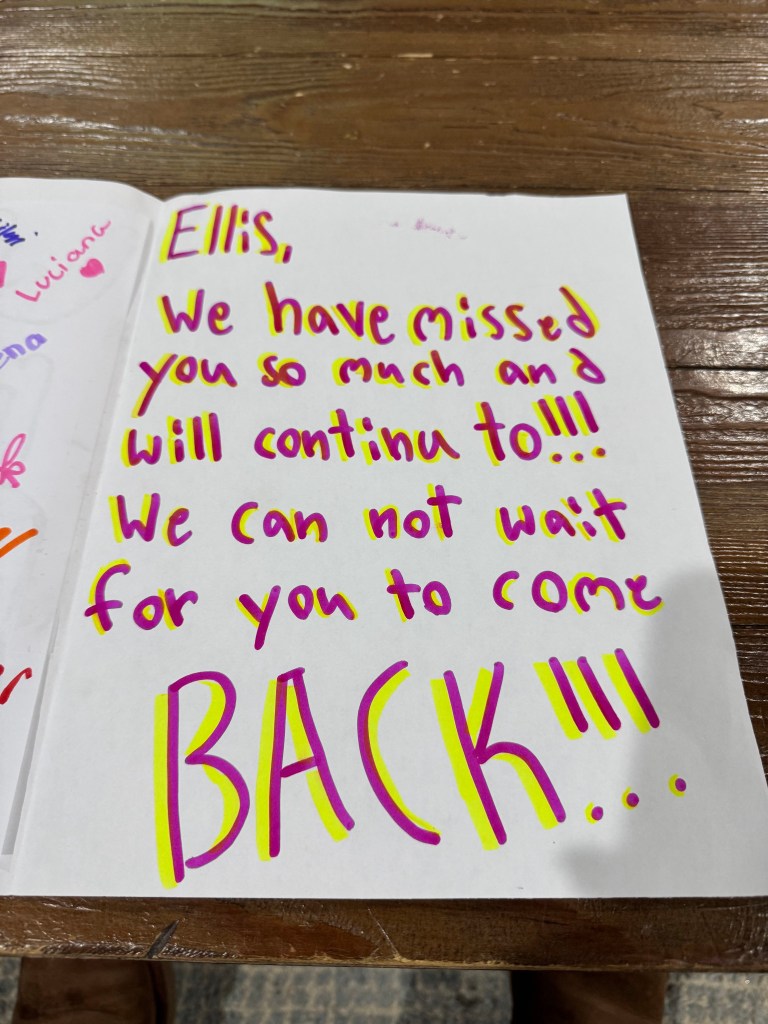 Luciana
Ellis,
We have missed
you so much and
will continu to!!!
We can not wait
for you to come
BACK!!!